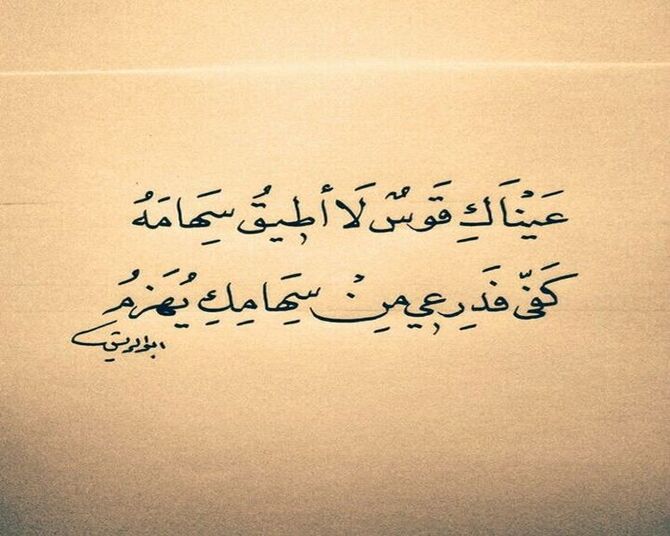 عَيْنَاكِ قَوْسٌ لَا أطِيقُ سِهَامَهُ
كَفّي فَذِرعِي مِنْ سِهَامِكِ يُهزَمُ